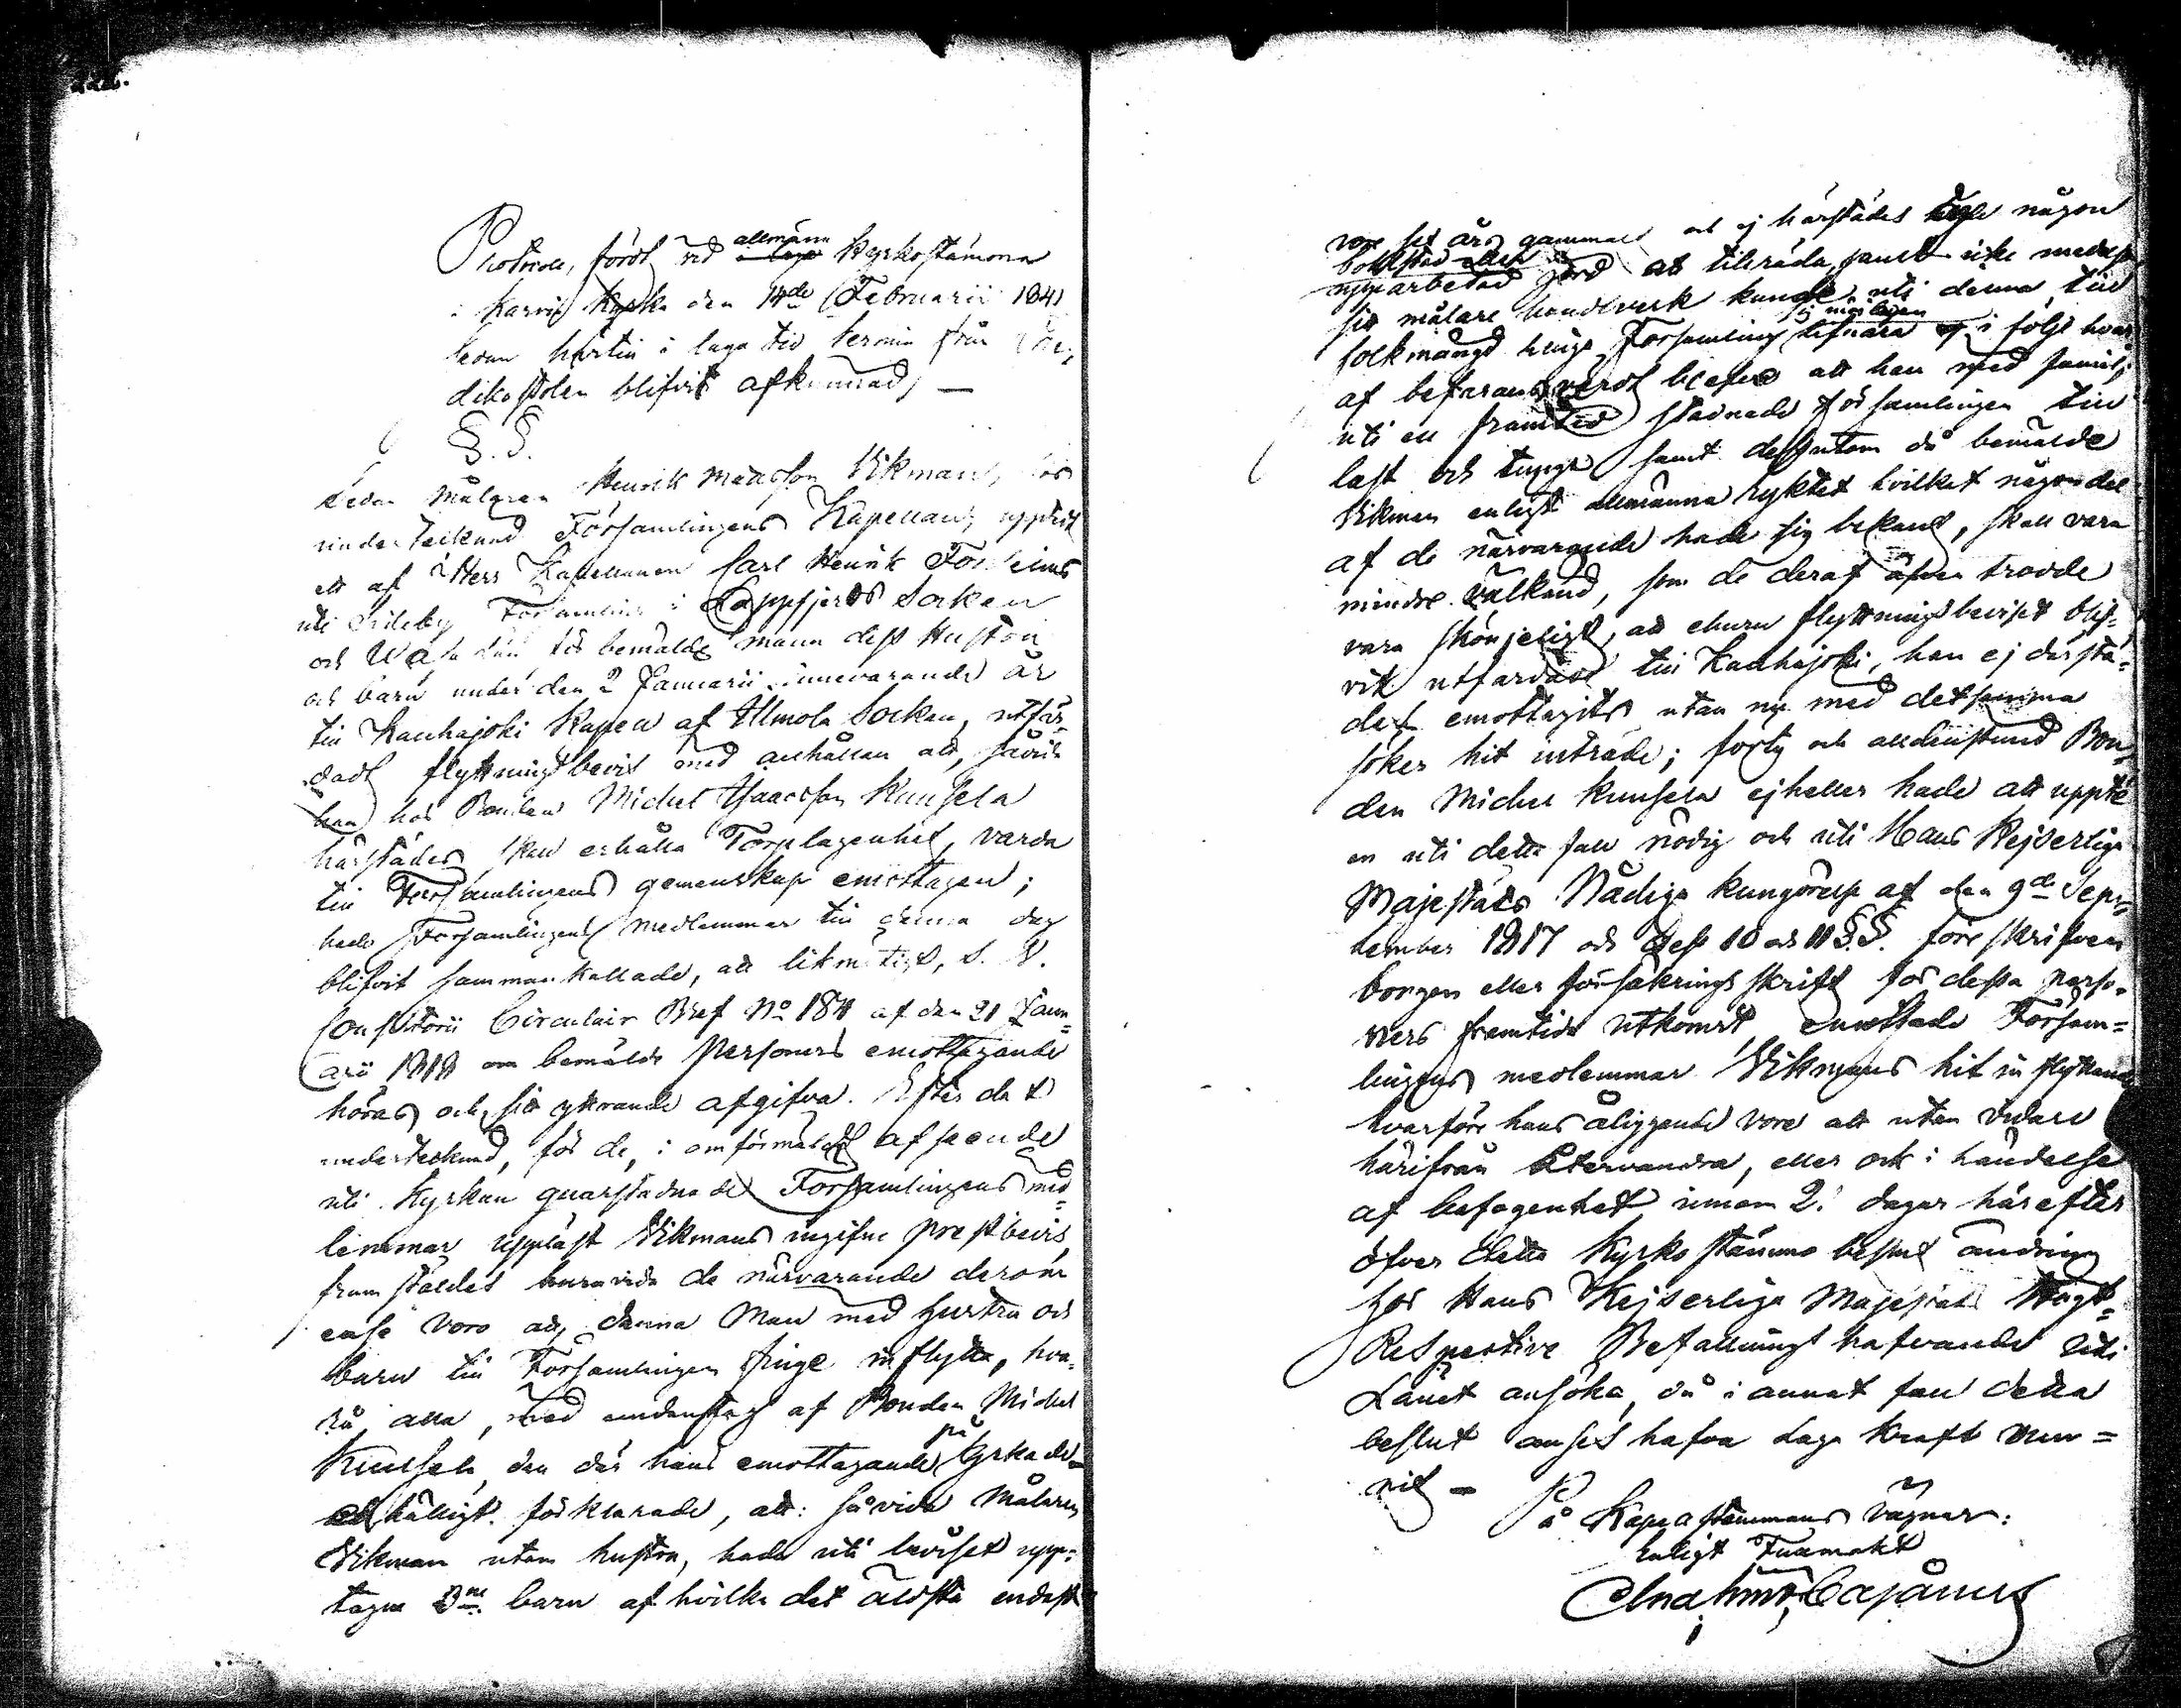 Protocoll, fördt vid allmänn Kyrkostämma
i Karvia Kyrka den 14de Februarii 1841
sedan härtill i laga tid termin från Pre¬
dikostolen blifvit afkunnad, —
§. §.
Sedan Målaren Henrik Mattsson Vikman, hos
undertecknad Församlingens Kapellan, uppvist
ett af Herr Kapellanen Carl Henrik
uti Sideby Församling i Lappfjerds Socken
och Wasa Län för bemälde man dess Hustru
och barn under den 2 Januarii innevarande år
till Kauhajoki Kapell af Illmola Socken, utfär¬
dadt flyttningsbevis med anhållan att, såvida
han hos Bonden Michel Isaacsson Kuusela
härstädes skall erhålla Torplägenhet, varda
till Församlingens gemenskap emottagen;
hade Församlingens medlemmar till denna dag
blifvit sammankallade, att likmätigt, S. V.
Consistorii Circulair Bref No 184 af den 21 Janu=
arii 1818 om bemälde Personers emottagande
höras och sitt yttrande afgifva. Efter det
undertecknad, för de, i omförmäldt afseende
uti Kyrkan quarstadnade Församlingens med=
lemmar uppläst Vikmans ingifne prestbevis,
framstäldes huruvida de närvarande derom
ense voro att denna Man med hustru och
barn till Församlingen finge inflytta, hva¬
då alla, med undantag af Bonden Michel
Kuusela, den där hans emottagande på yrkade
enhälligt förklarade, att: såvida Målaren
Vikman utom hustru, hade uti beviset upp=
tagne 3ne barn af hvilka det äldsta endast
vore sex år gammalt och ej härstädes ägde någon
bohlstad eller
upparbetad jord att tillträda, samt icke medelst
sitt målare handtverk kunde uti denna, till
folkmängd ringa Församling sig möjligen lifnära i följe hvar¬
af befarans värdt blefve att han med familj
uti en framtid stadnade Församlingen till
last och tunga samt dessutom då bemälde
Vikman enligt allmänna ryktet hvilket någon del
af de närvarande hade sig bekant, skall vara
mindre välkänd, som de deraf äfven trodde
vara skönjeligt, att ehuru flyttningsbeviset blif=
vit utfärdadt till Kauhajoki, han ej därstä=
des emottagits utan nu med detsamma
söker hit inträde; forty och alldenstund Bon¬
den Michel Kuusela ejheller hade att uppte
en uti detta fall nödig och uti Hans Kejserliga
Majestäts Nådiga Kungörelse af den 9de Sep¬
tember 1817 och dess 10 och 11 §§. föreskrifven
borgen eller försäkrings skrift för dessa perso¬
ners framtida utkomst, Församl=
lingens medlemmar Vikmans hit inflyttande
hvarföre hans åliggande vore att utan vidare
härifrån återvandra, eller ock i händelse
af befogenhet innom 21 dagar härefter
öfver detta Kyrkostämmo beslut ändring
hos Hans Kejserliga Majestäts Högt=
Respective Befallningshafvande uti
Länet ansöka, då i annat fall detta
beslut anses hafva laga kraft vun=
nit —
På Kapellstämmans vägnar:
Enligt Fullmakt
Cajanus